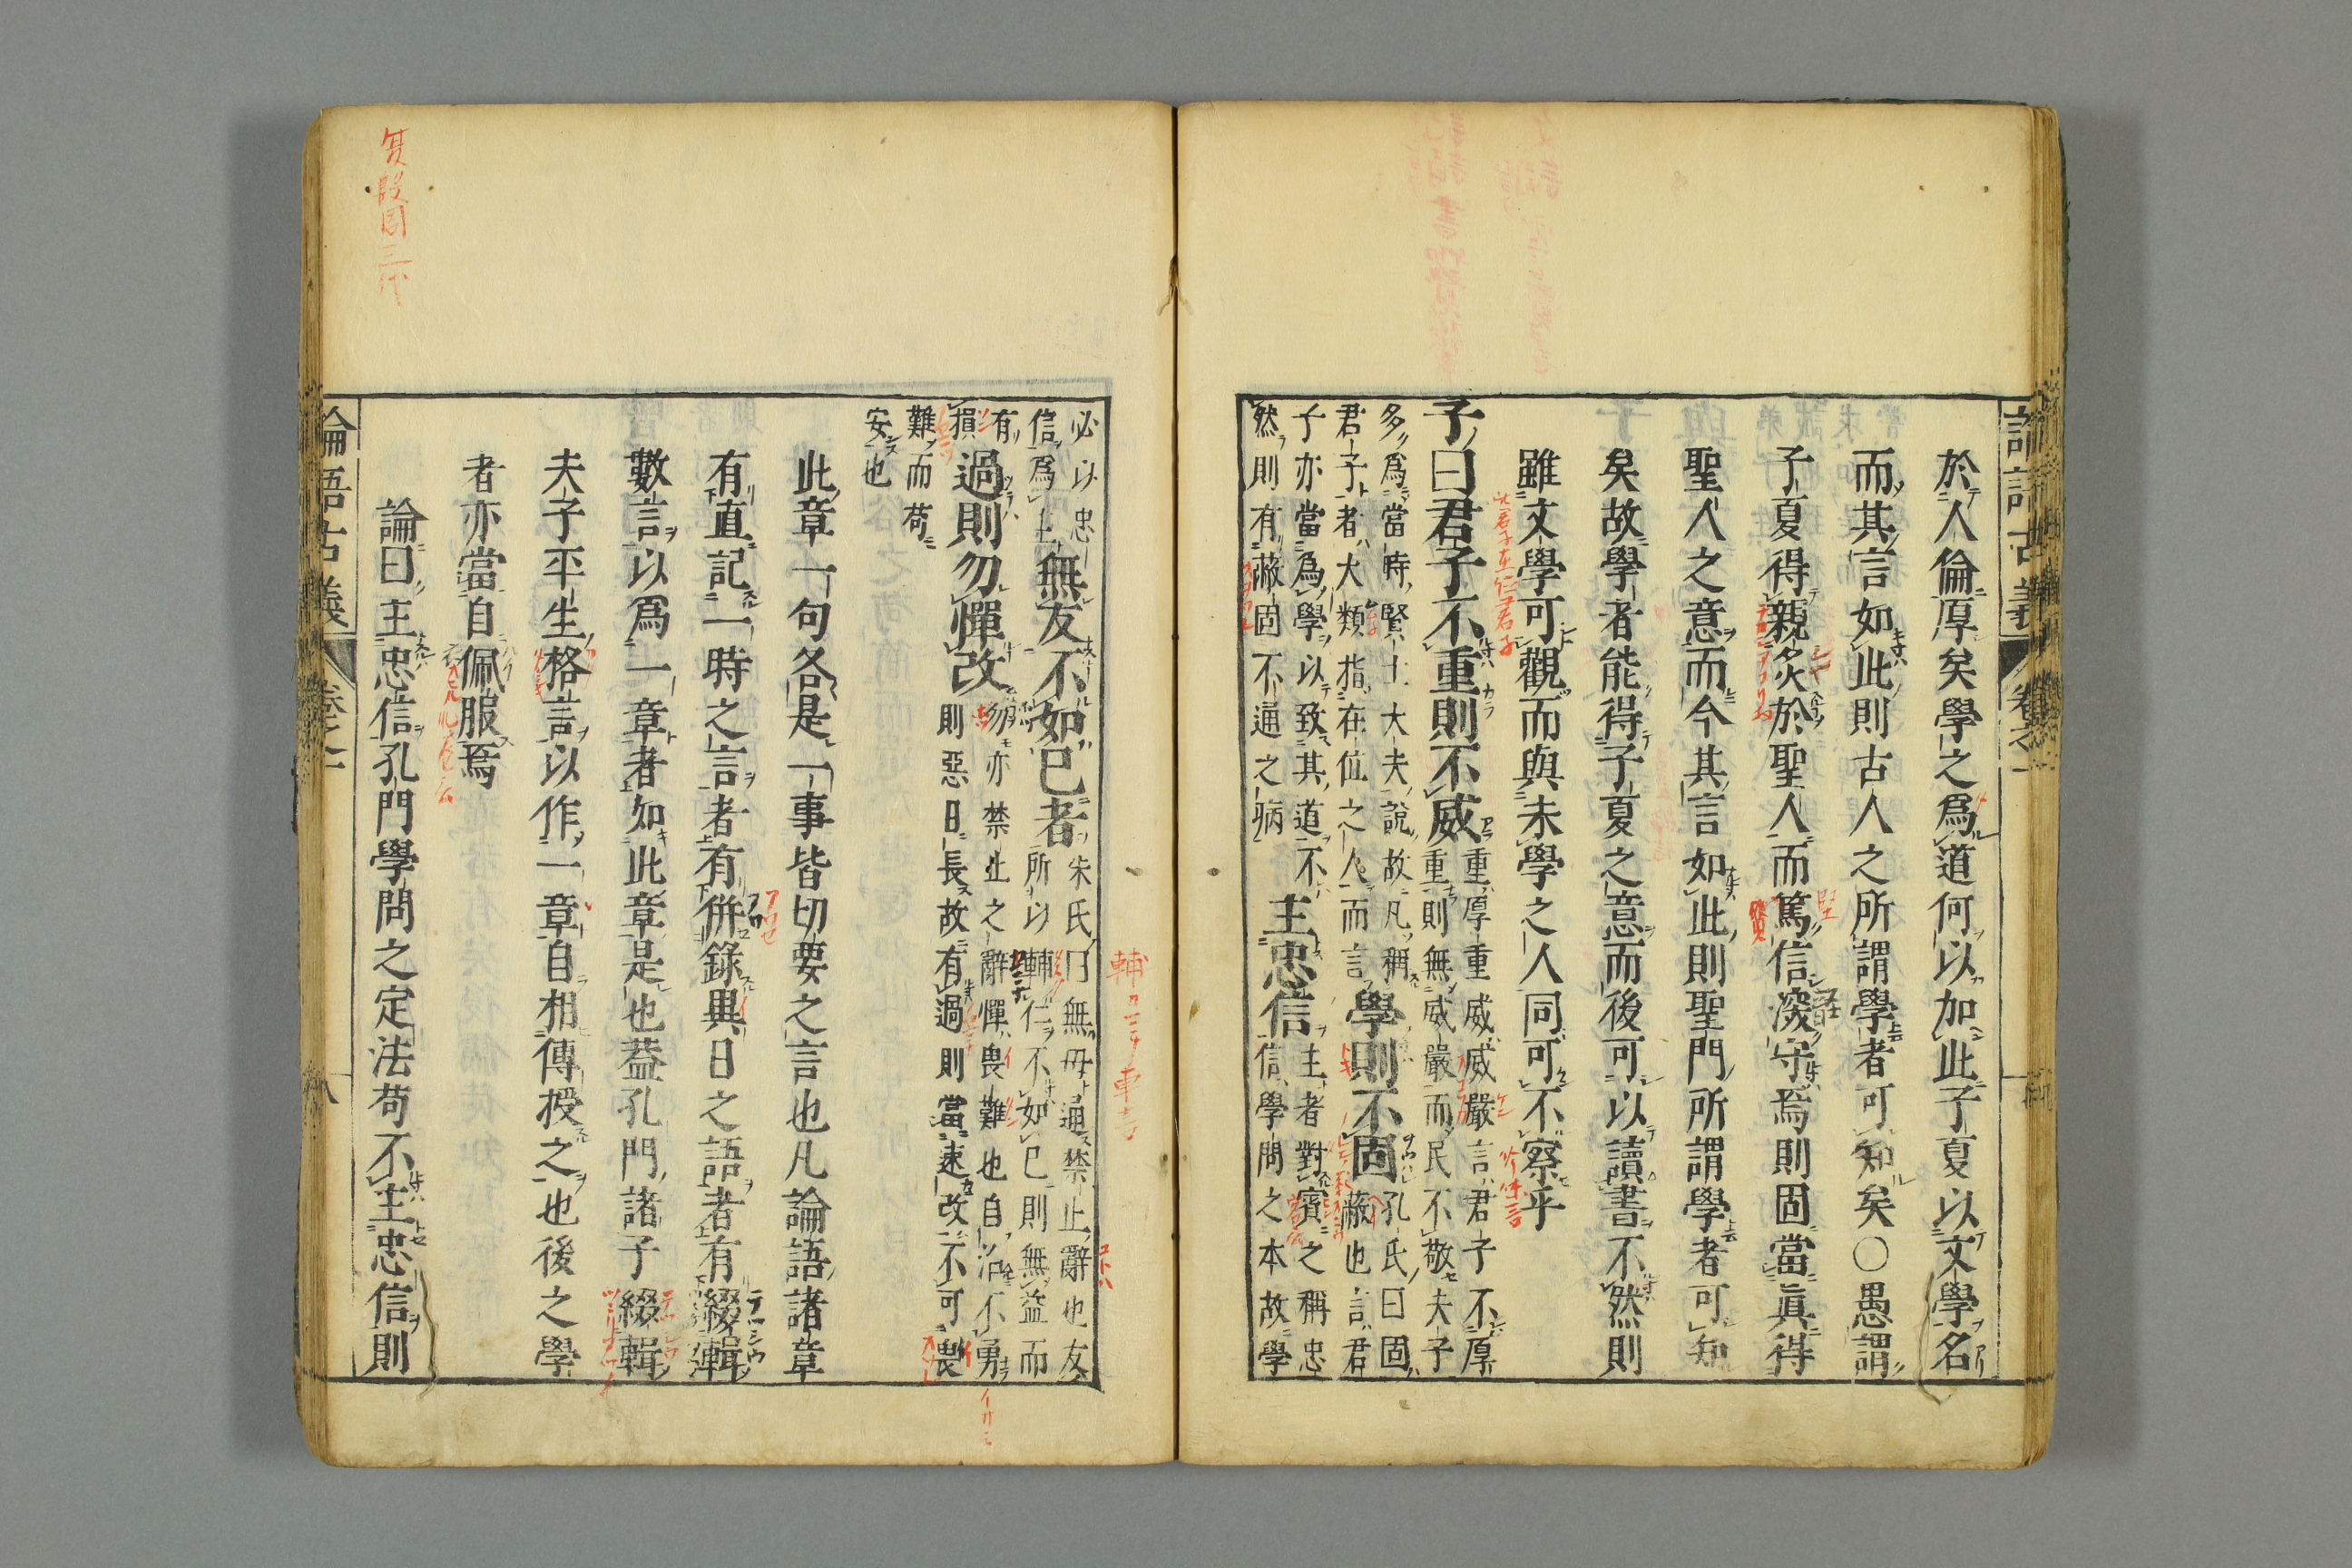 於人倫厚矣學之爲道何以加此子夏以文學名
而其言如此則古人之所謂學者可知矣○愚謂
子夏得親炙於聖人而篤信深守焉則固當眞得
聖人之意而今其言如此則聖門所謂學者可知
矣故學者能得子夏之意而後可以讀書不然則
雖文學可觀而與未學之人同可不察乎
子曰君子不重則不威
重厚重威威嚴言君子不厚
重則無威嚴而民不敬夫子
多爲當時賢士大夫說故凡稱
君子者大類指在位之人而言
學則不固
孔氏曰固
蔽也言君
子亦當爲學以致其道不
然則有蔽固不通之病
主忠信
主者對賓之稱忠
信學問之本故學
必以忠
信爲主
無友不如已者
朱氏曰無毋通禁止辭也友
所以輔仁不如已則無益而
有
損
過則勿憚改
勿亦禁止之辭憚畏難也自治不勇
則惡日長故有過則當速改不可畏
難而苟
安也
此章一句各是一事皆切要之言也凡論語諸章
有直記一時之言者有併錄異日之語者有綴輯
數言以爲一章者如此章是也葢孔門諸子綴輯
夫子平生格言以作一章自相傳授之也後之學
者亦當自佩服焉
論曰主忠信孔門學問之定法苟不主忠信則
論語古義
卷之一
八